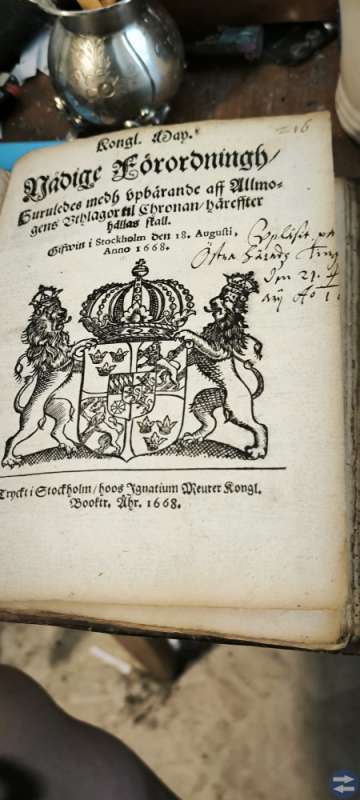 216
Kongl. May.
Nådige Förordningh/
Huruledes medh Vpbärande aff Allmo-
gens Vthlagor til Chronan/ häreffter
hållas skall.
Gifwin i Stockholm den 18. Augusti,
Anno 1668.
Östra Härads Ting
den 29.
Tryckt i Stockholm/ hoos Ignatium Meurer Kongl.
Booktr. Åhr. 1668.